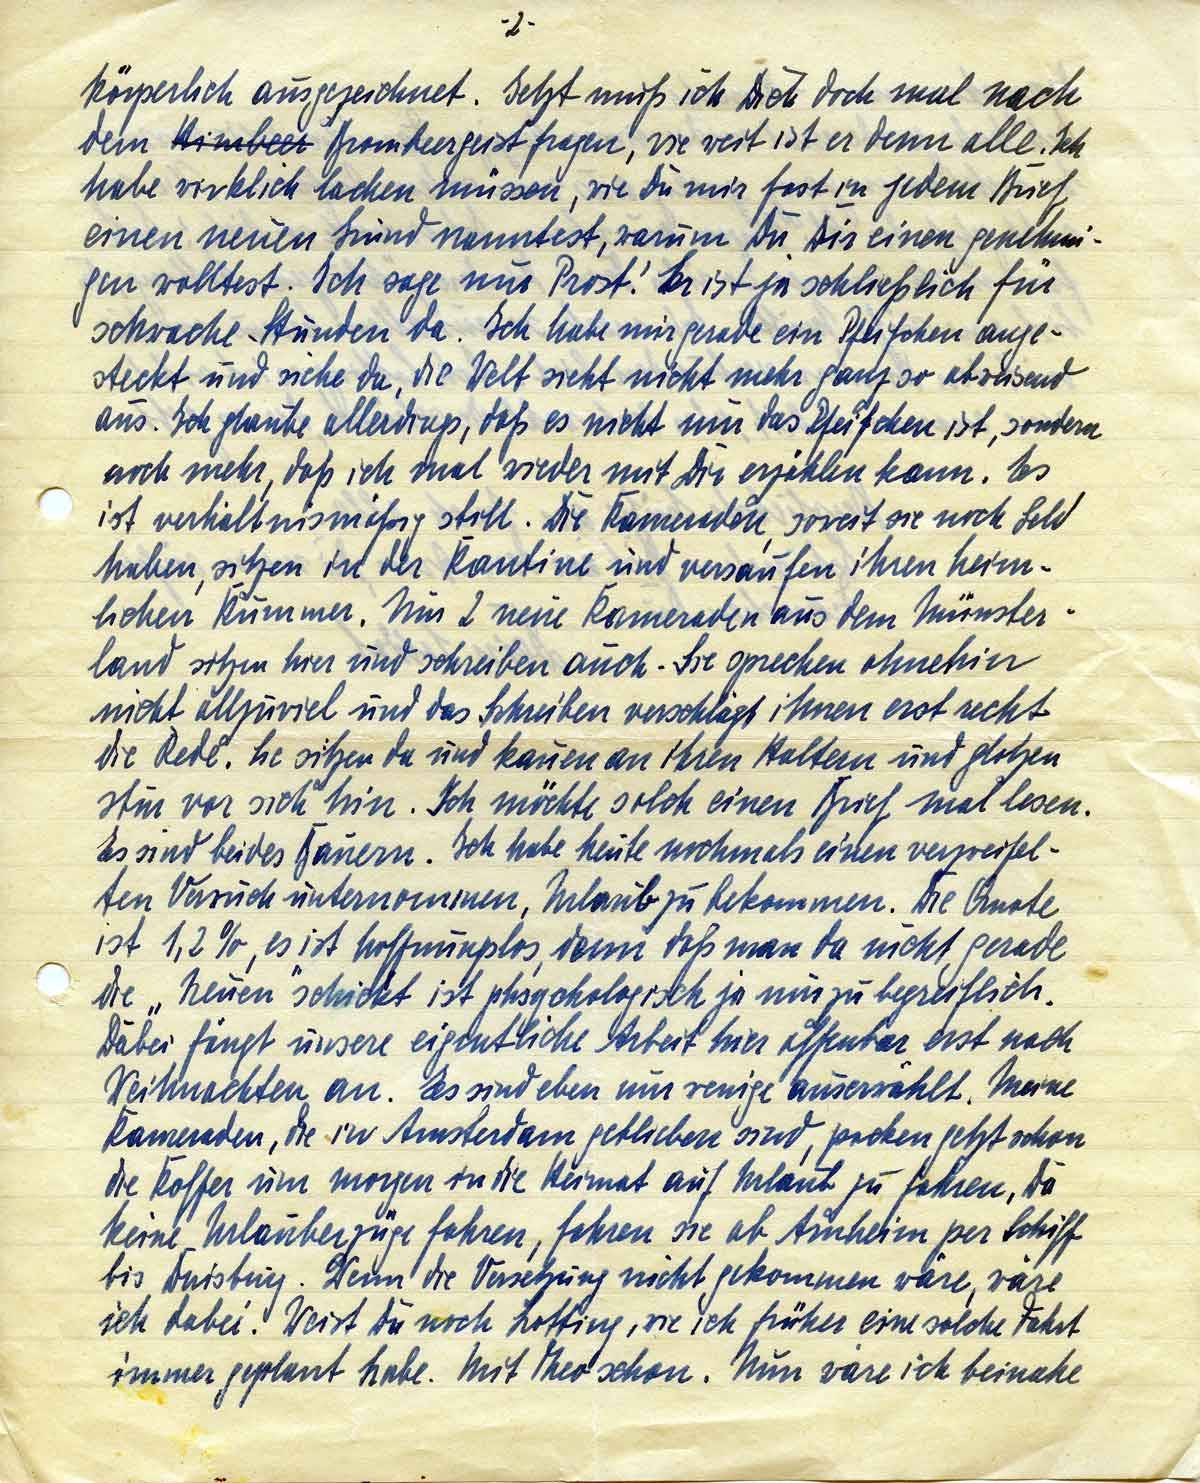 -2-
körperlich ausgezeichnet. Jetzt muß ich Dich doch mal nach
dem Himbeer Brombeergeist fragen, wie weit ist er denn alle. Ich
habe wirklich lachen müssen, wie Du mir fast in jedem Brief
einen neuen Grund nanntest, warum Du Dir einen genehmi-
gen wolltest. Ich sage nur Prost! Er ist ja schließlich für
schwache Stunden da. Ich habe mir gerade ein Pfeifchen ange-
steckt und siehe da, die Welt sieht nicht mehr ganz so abweisend
aus. Ich glaube allerdings, daß es nicht nur das Pfeifchen ist, sondern
noch mehr, daß ich mal wieder mit Dir erzählen kann. Es
ist verhältnismäßig still. Die Kameraden, soweit sie noch Geld
haben, sitzen in der Kantine und versaufen ihren heim-
lichen Kummer. Nur 2 neue Kameraden aus dem Münster-
land sitzen hier und schreiben auch. Sie sprechen ohnehin
nicht allzuviel und das Schreiben verschlägt ihnen erst recht
die Rede. Sie sitzen da und kauen an ihren Haltern und glotzen
stur vor sich hin. Ich möchte solch einen Brief mal lesen.
Es sind beides Bauern. Ich habe heute nochmals einen verzweifel-
ten Versuch unternommen, Urlaub zu bekommen. Die Quote
ist 1,2%, es ist hoffnungslos, denn daß man da nicht gerade
die „Neuen" schickt ist phsychologisch ja nur zu begreiflich.
Dabei fängt unsere eigentliche Arbeit hier offenbar erst nach
Weihnachten an. Es sind eben nur wenige auserwählt. Meine
Kameraden, die in Amsterdam geblieben sind, packen jetzt schon
die Koffer um morgen in die Heimat auf Urlaub zu fahren. Da
keine Urlauberzüge fahren, fahren sie ab Arnheim per Schiff
bis Duisburg. Wenn die Versetzung nicht gekommen wäre, wäre
ich dabei. Weist Du noch Lotting, wie ich früher eine solche Fahrt
immer geplant habe. Mit Theo schon. Nun wäre ich beinahe